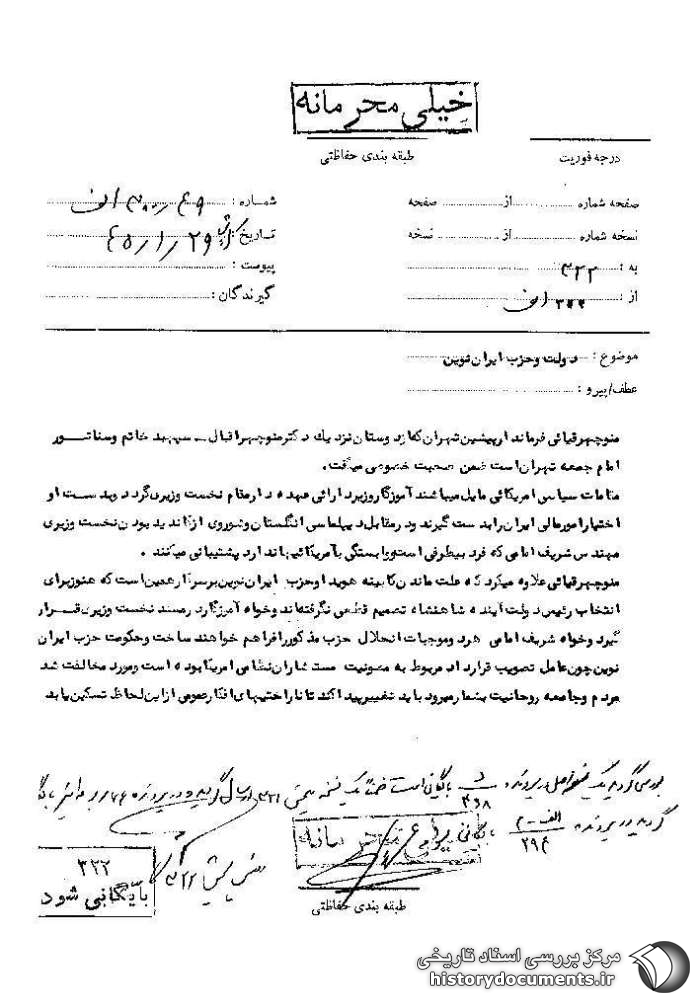 خیلی محرمانه
طبقه بندی حفاظتی
درجه فوریت
صفحه شماره از صفحه
شماره :
نسخه شماره از نسخه
تاریخ : ۴۵/۱/۲۹
به : ۳۲۲
پیوست :
از : الف
گیرندگان :
موضوع : دولت وحزب ایران نوین
عطف/پیرو :
منوچهر قیائی فرماندار پیشین تهران که از دوستان نزدیك دکتر منوچهر اقبال ـ سپهبد خاتم وسناتور
امام جمعه تهران است ضمن صحبت خصوصی میگفت .
مقامات سیاسی امریکائی مایل میباشند آموزگار وزیر دارائی عهده دار مقام نخست وزیری گردد وبدست او
اختیار امور مالی ایران رابدست گیرند ودر مقابل دیپلماسی انگلستان وشوروی از کاندید بودن نخست وزیری
مهندس شریف امامی که فرد بیطرفی است ووابستگی بآمریکائیها ندارد پشتیبانی میکنند .
منوچهر قیائی علاوه میکرد که علت ماندن کابینه هویدا وحزب ایران نوین برسر کار همین است که هنوز برای
انتخاب رئیس دولت آینده شاهنشاه تصمیم قطعی نگرفته اند وخواه آموزگار درمسند نخست وزیری قرار
گیرد وخواه شریف امامی هردو موجبات انحلال حزب مذکور را فراهم خواهند ساخت وحکومت حزب ایران
نوین چون عامل تصویب قرارداد مربوط به مصونیت مستشاران نظامی امریکا بوده است ومورد مخالفت شدید
مردم وجامعه روحانیت بشمار میرود باید تغییر پیدا کند تا ناراحتیهای افکار عمومی از این لحاظ تسکین یابد
۳۶۸
الف - ۲
۲۹۴
خیلی محرمانه
طبقه بندی حفاظتی
۳۲۲
بایگانی شود
مرکز بررسی اسناد تاریخی
historydocuments.ir